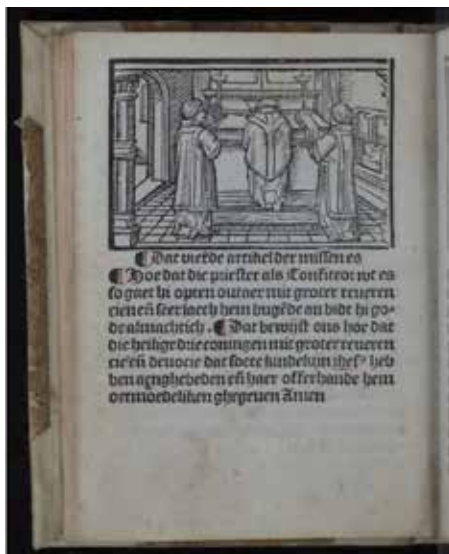 ¶ Dat vierde artikel der missen es
¶ Hoe dat die priester als Confiteor wt es
so gaet hi opten outaer mit groter reueren
cien eñ seer laech hem bugẽde an bidt hi go-
de almachtich. ¶ Dat bewijst ons hoe dat
die heilige drie coningen mit groter reueren
cie eñ deuocie dat soete kindekijn ihesꝰ heb
ben aenghebeden eñ haer offerhande hem
oetmoedeliken ghegeuen Amen